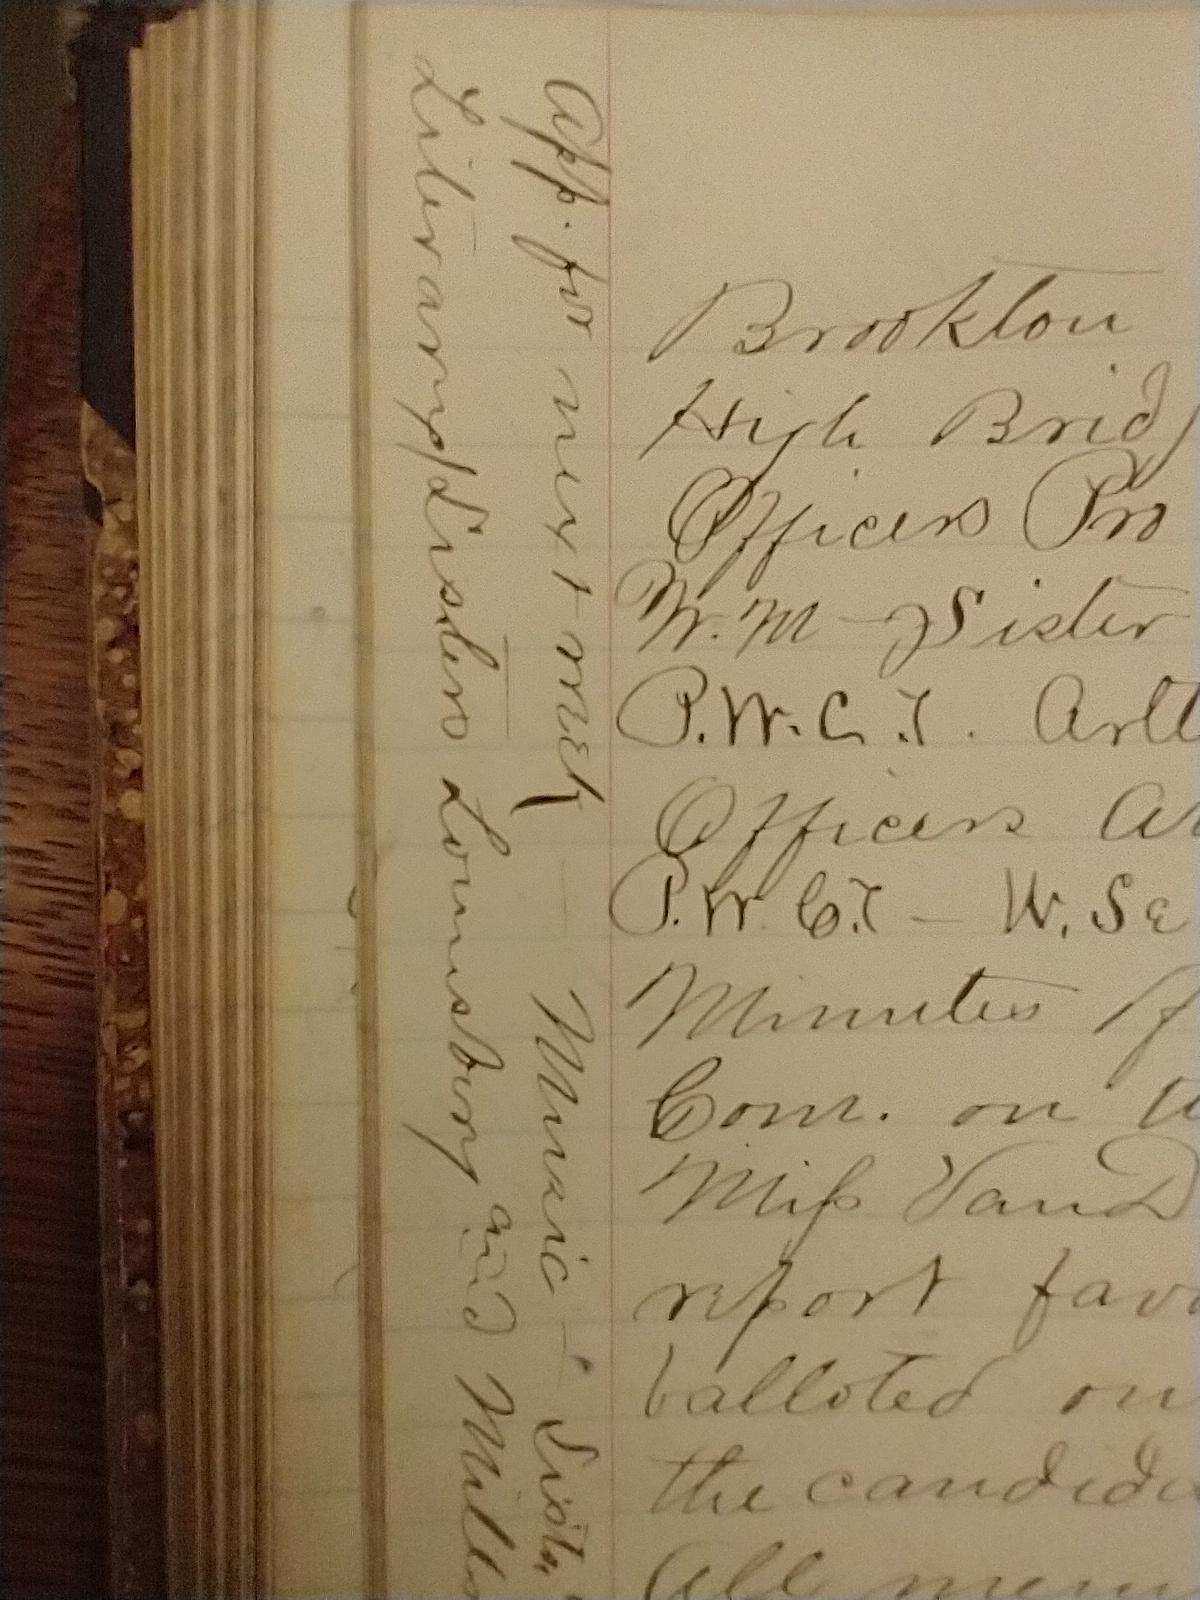 App. for next week — Music — Sister
Literary Sisters Lounsbury and Mills
Brookton
High Bridg
Officers Pro
W. M — Sister
P.W.C.T. Arth
Officers A
P.W.C.T — W. Se
Minutes
Com. on
Miss Vand
report favo
balloted on
the candida
All mem